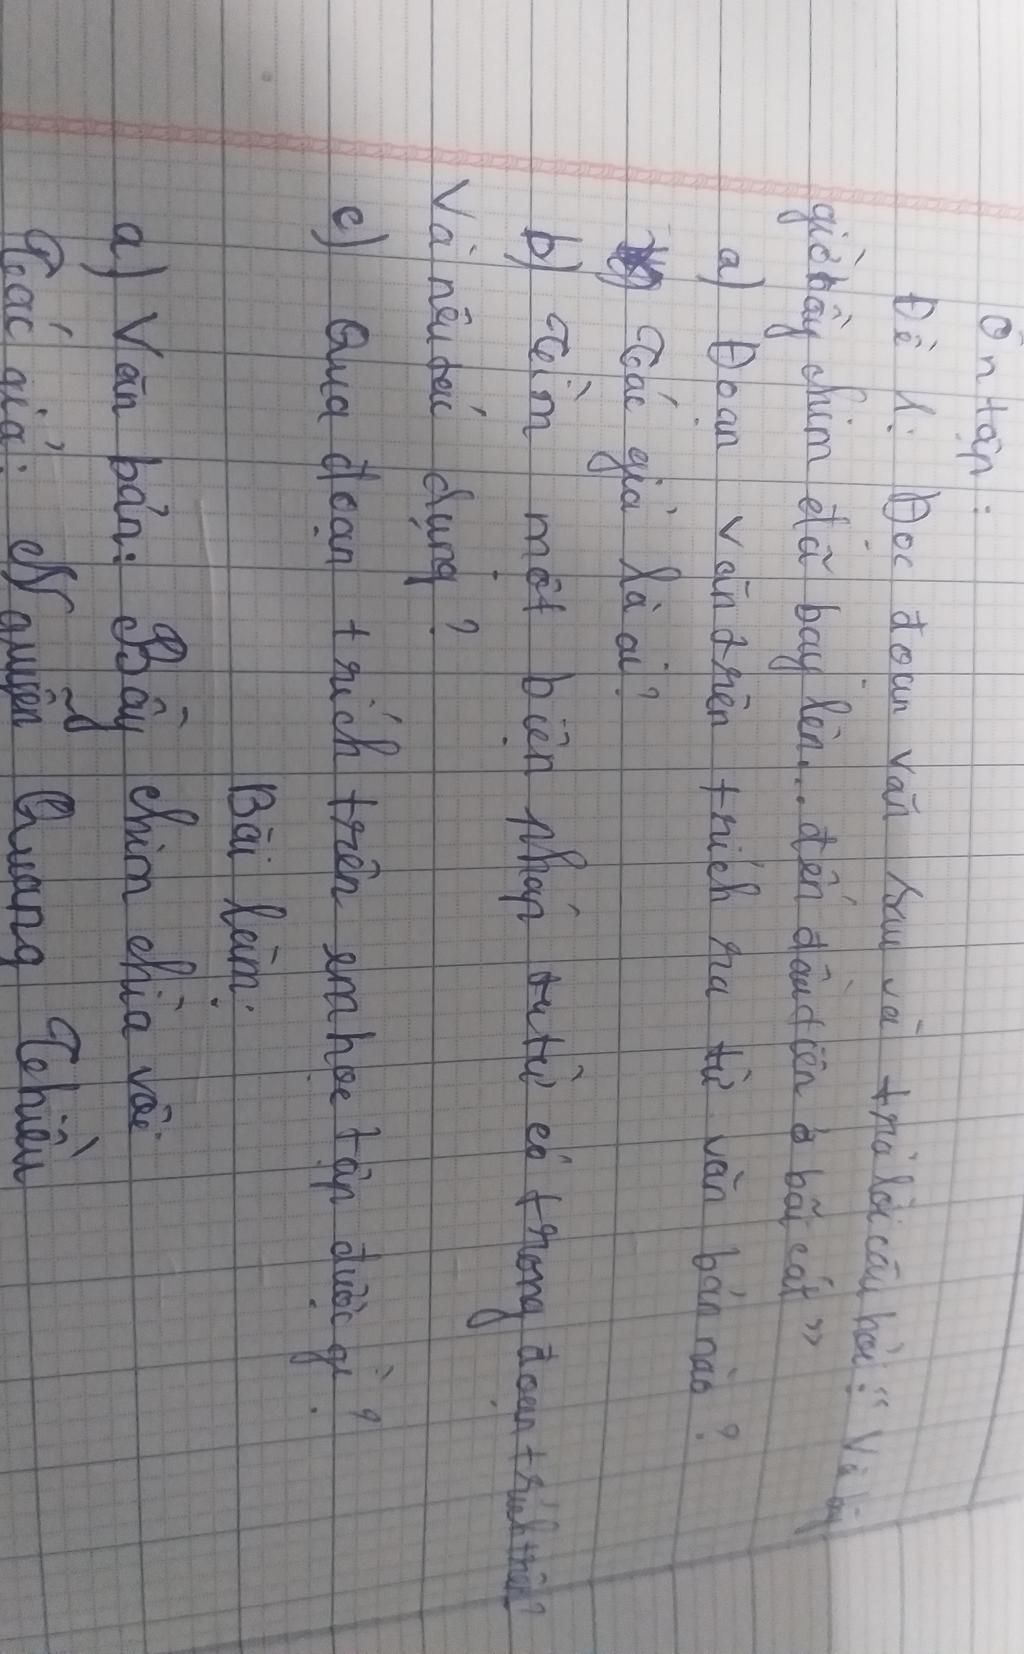 Ôn tập:
Đề 1: Đọc đoạn văn sau và trả lời câu hỏi: "Và bây
giờ bầy chim đã bay lên... đến đầu tiên ở bãi cát"
a) Đoạn văn trên trích ra từ văn bản nào?
Tác giả là ai?
b) Tìm một biện pháp tu từ có trong đoạn trích trên?
Và nêu tác dụng?
c) Qua đoạn trích trên em học tập được gì?
Bài làm:
a) Văn bản: Bầy chim chìa vôi
Tác giả: Nguyễn Quang Thiều